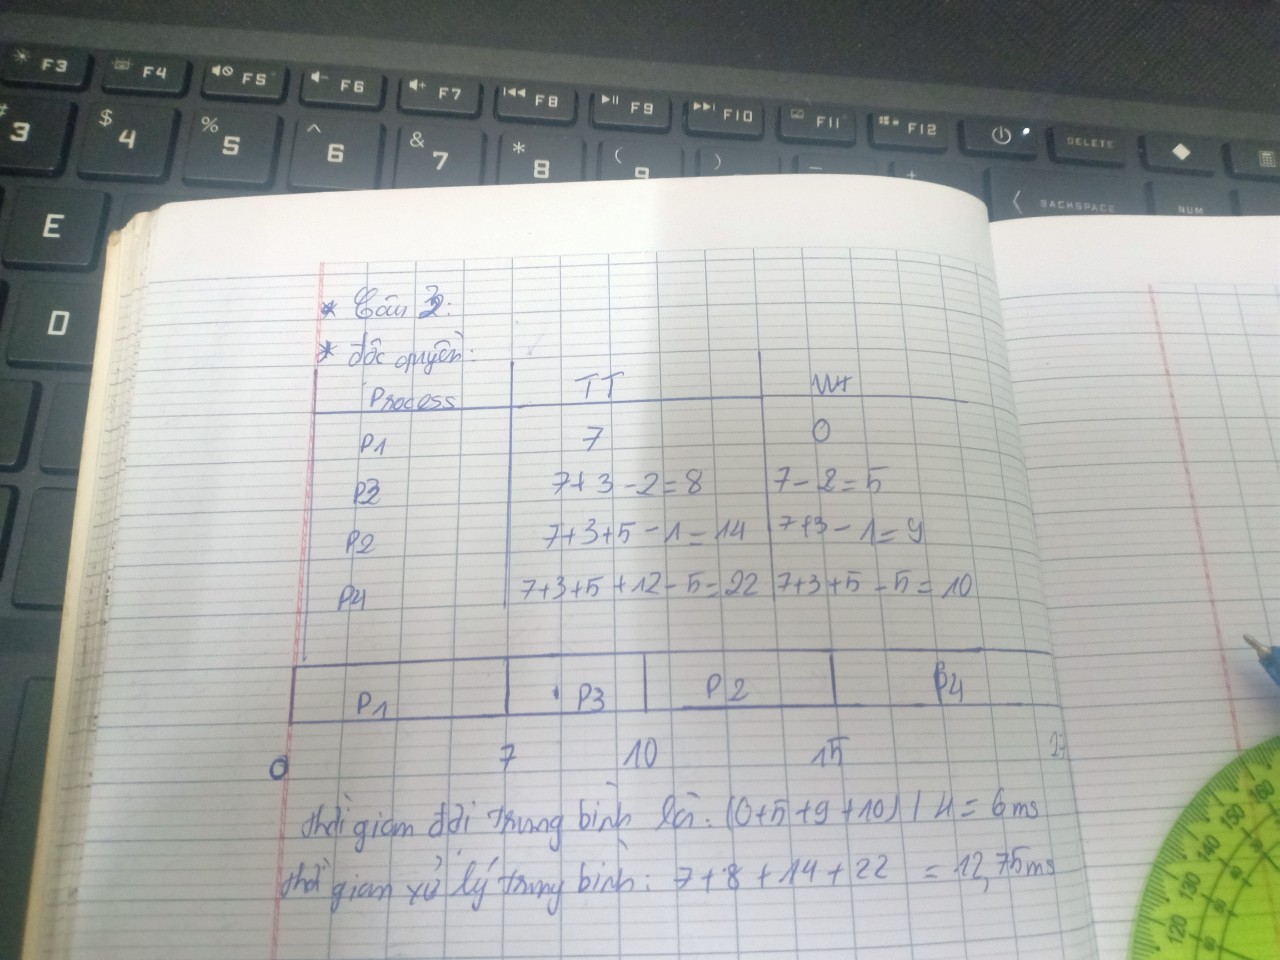 F3 F4 F5 F6 F7 F8 F9 F10 F11 F12 DELETE
# 3 $ 4 % 5 ^ 6 & 7 * 8 ( 9 ) _ +
BACKSPACE NUM
E
D
* Câu 3:
* độc quyền:
Process TT Wt
P1 7 0
P3 7+3-2=8 7-2=5
P2 7+3+5-1=14 7+3-1=9
P4 7+3+5+12-5=22 7+3+5-5=10
P1 P3 P2 P4
0 7 10 15 27
thời gian đợi trung bình là: (0+5+9+10)/4=6ms
thời gian xử lý trung bình: 7+8+14+22 = 12,75ms
160
150
140
130
120